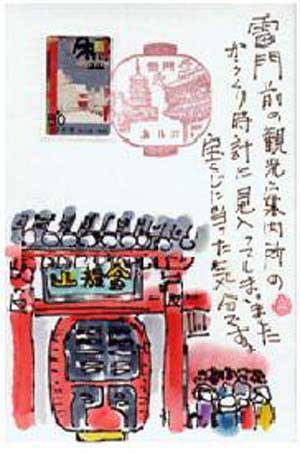 雷門前の観光案内所の
からくり時計に見入ってしまいました
宝くじに当った気分です。
雷門
金龍山